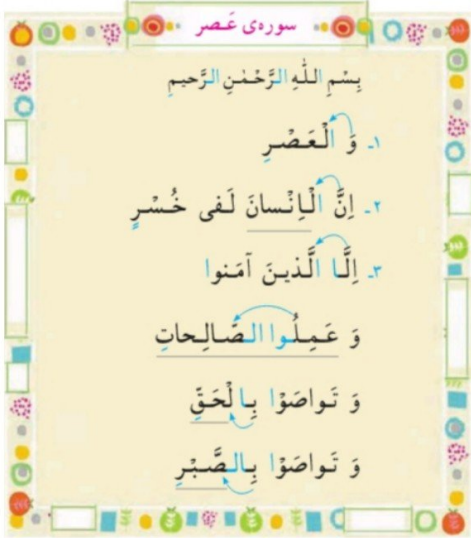 سوره‌ی عَـصر
بِسْمِ اللّٰهِ الرَّحْمٰنِ الرَّحیمِ
۱ـ وَ الْعَـصْـرِ
۲ـ اِنَّ الْـاِنْـسانَ لَـفی خُـسْـرٍ
۳ـ اِلَّـا الَّـذینَ آمَـنوا
وَ عَـمِـلُـوا الـصّـالِـحاتِ
وَ تَـواصَوْا بِـالْحَـقِّ
وَ تَـواصَوْا بِـالـصَّـبْـرِ